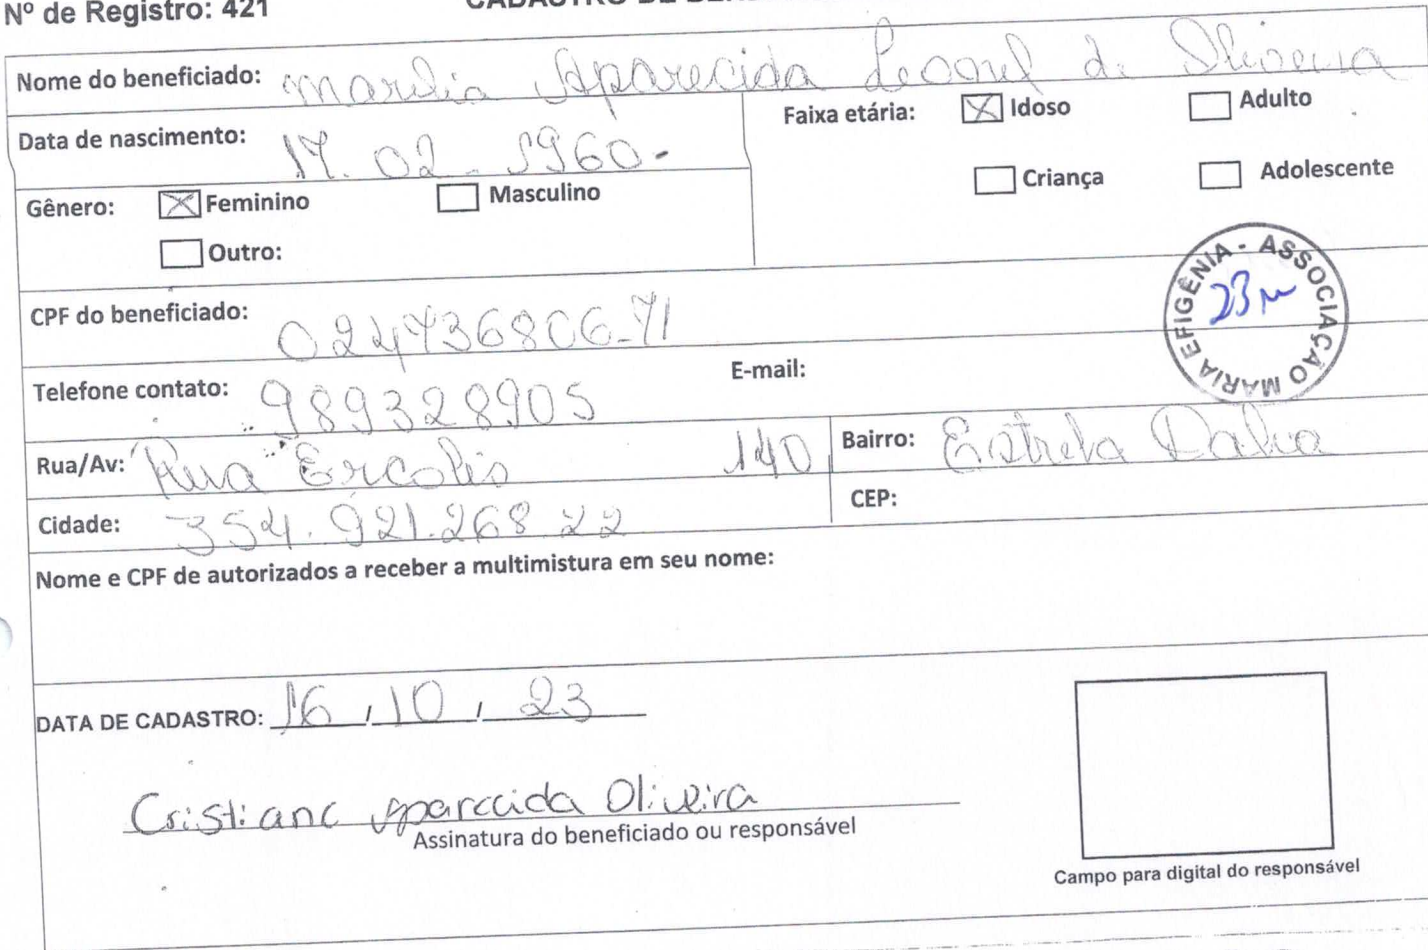 Nº de Registro: 421
Nome do beneficiado: Marilia Aparecida de Oliveira
Data de nascimento: 17.02.1960.
Faixa etária: [X] Idoso [ ] Adulto
[ ] Criança [ ] Adolescente
Gênero: [X] Feminino [ ] Masculino
[ ] Outro:
CPF do beneficiado: 024736806-71
ASSOCIAÇÃO MARIA EFIGÊNIA -
23
Telefone contato: 989328905 E-mail:
Rua/Av: Rua Ercolis 140 Bairro: Estrela Dalva
Cidade: 354.921.268.22 CEP:
Nome e CPF de autorizados a receber a multimistura em seu nome:
DATA DE CADASTRO: 16 / 10 / 23
Cristiane Aparecida Oliveira
Assinatura do beneficiado ou responsável
Campo para digital do responsável